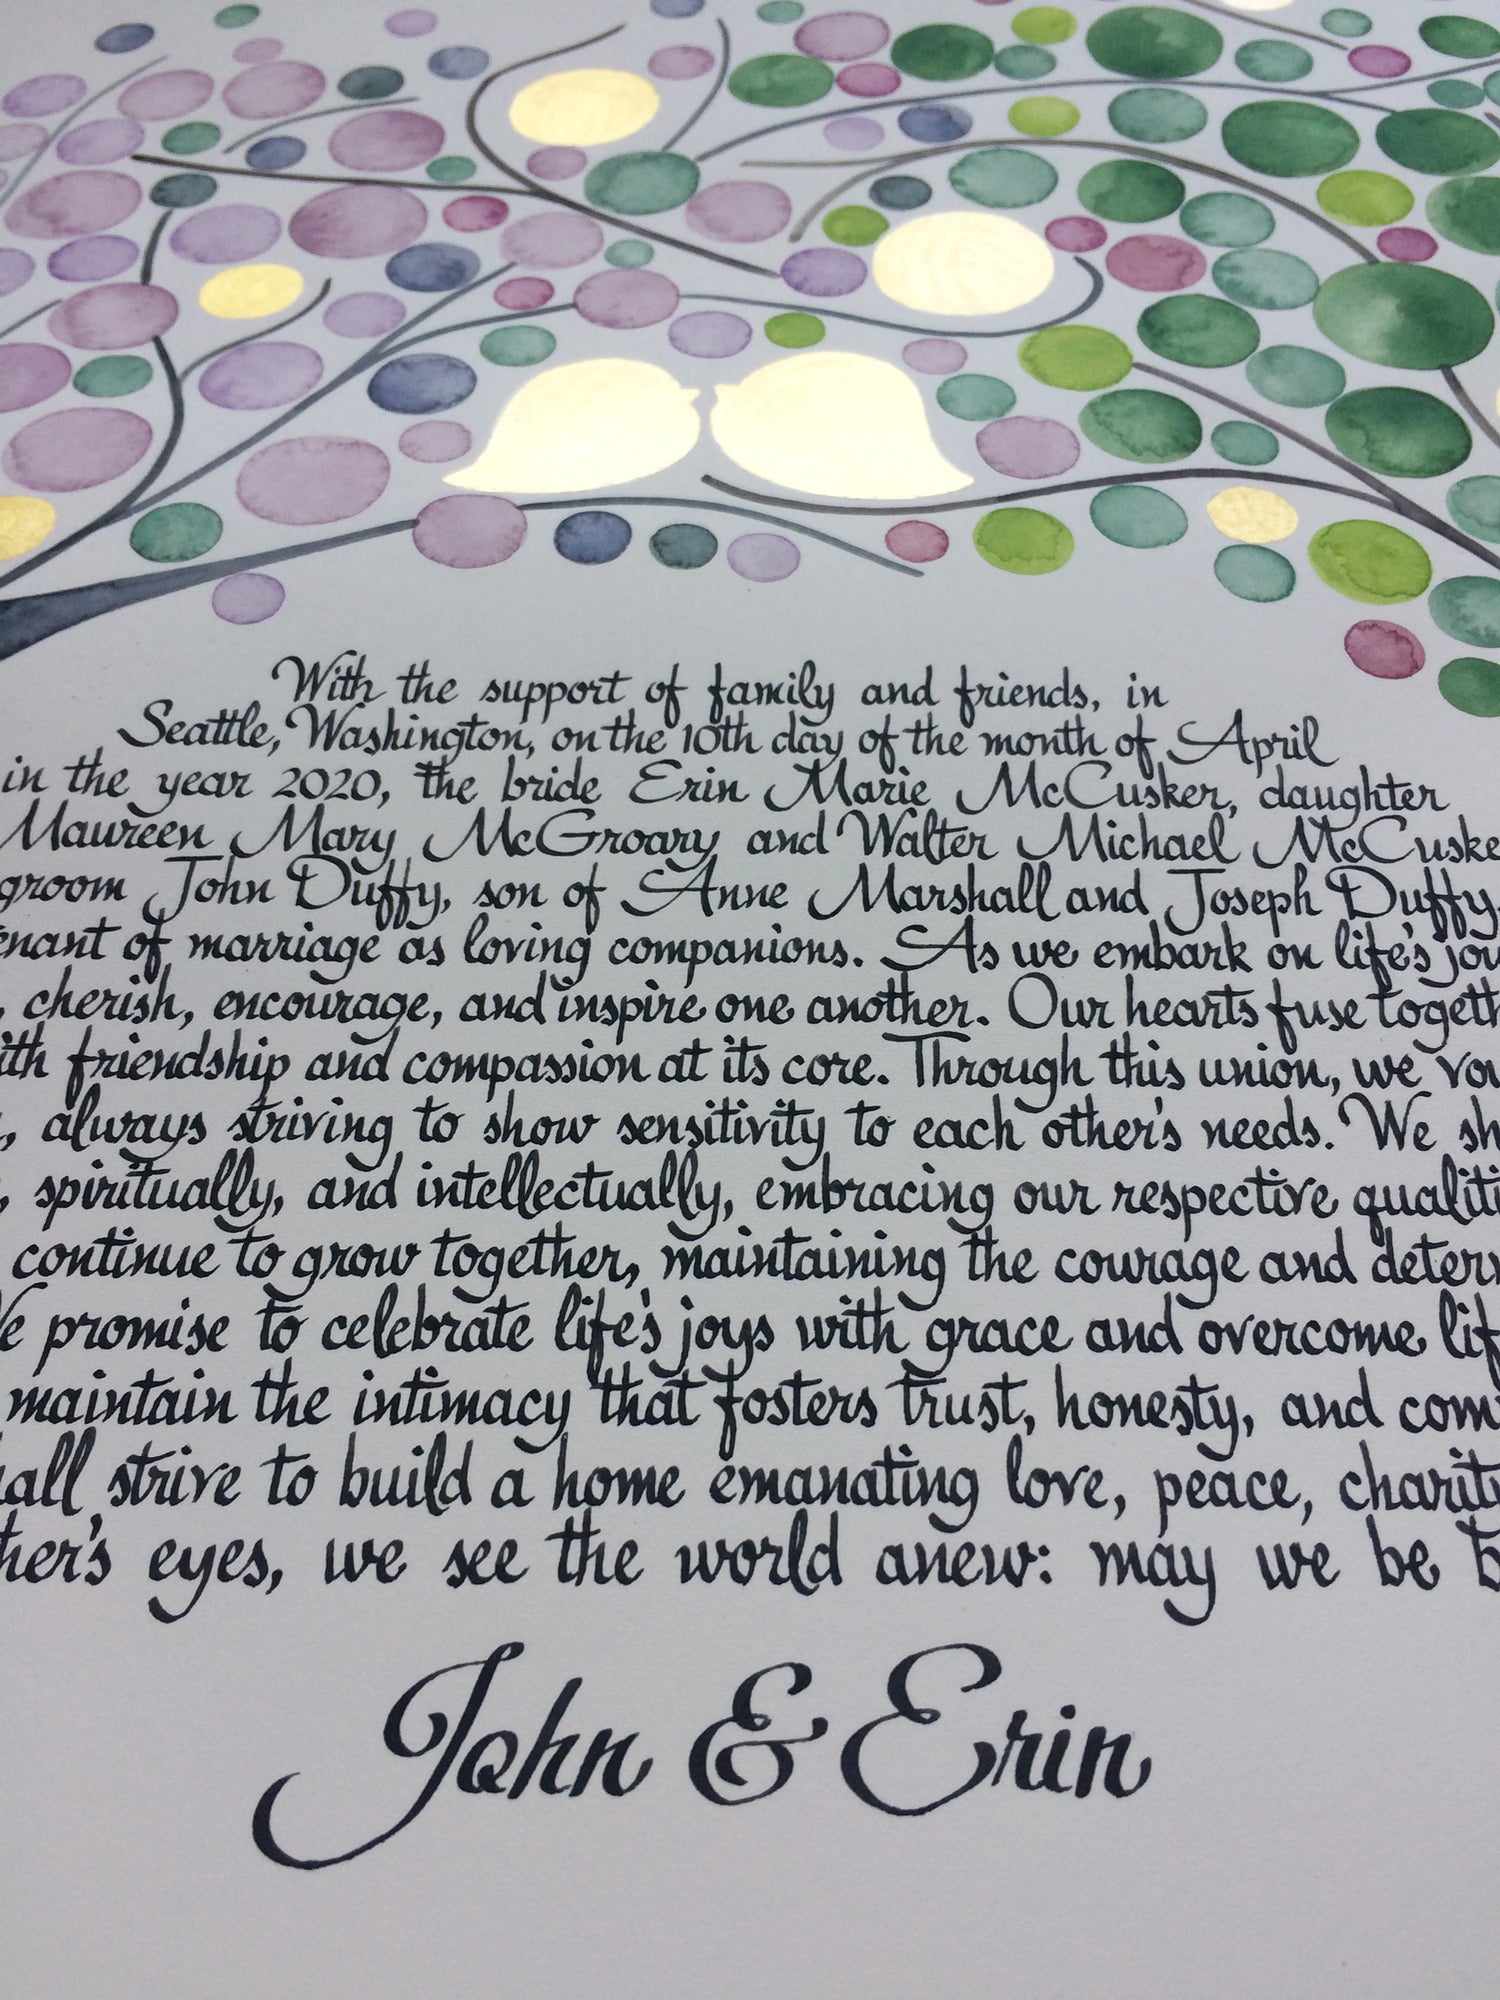 With the support of family and friends, in
Seattle, Washington, on the 10th day of the month of April
in the year 2020, the bride Erin Marie McCusker, daughter
Maureen Mary McGroary and Walter Michael McCuske
groom John Duffy, son of Anne Marshall and Joseph Duffy,
enant of marriage as loving companions. As we embark on life's jou
, cherish, encourage, and inspire one another. Our hearts fuse togeth
ith friendship and compassion at its core. Through this union, we vow
, always striving to show sensitivity to each other's needs. We sh
, spiritually, and intellectually, embracing our respective qualiti
continue to grow together, maintaining the courage and deter
We promise to celebrate life's joys with grace and overcome lif
maintain the intimacy that fosters trust, honesty, and com
all strive to build a home emanating love, peace, charity
her's eyes, we see the world anew: may we be b
John & Erin